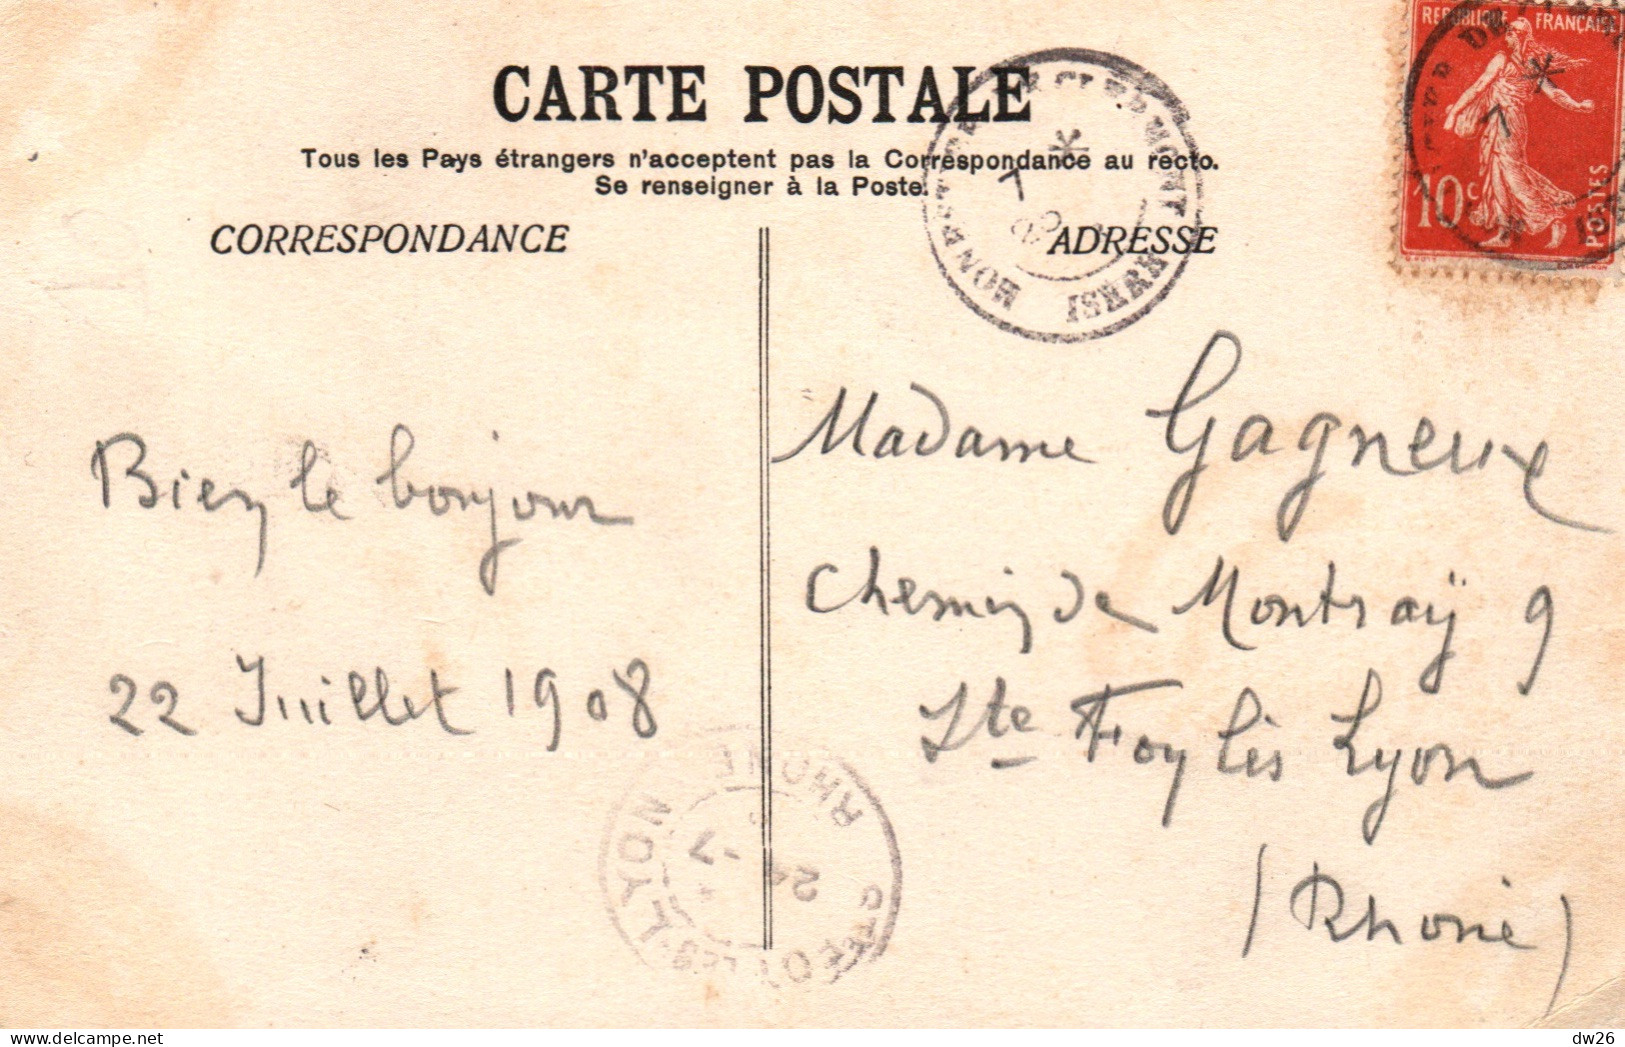 CARTE POSTALE
Tous les Pays étrangers n'acceptent pas la Correspondance au recto.
Se renseigner à la Poste.
CORRESPONDANCE
ADRESSE
MONESTIER DE CLERMONT
ISERE
7
REPUBLIQUE FRANÇAISE
10 c
POSTES
Bien le bonjour
22 Juillet 1908
Madame Gagneux
Chemin de Montraÿ 9
Ste Foy lès Lyon
(Rhône)
STE FOY LES LYON
RHONE
24 - 7
delcampe.net
dw26